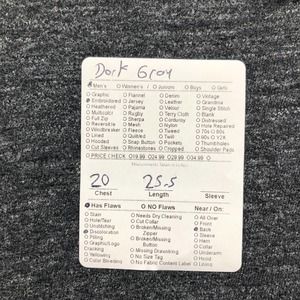 Dark Gray
Men's O Women's / O Juniors O Boys O Girls
O Graphic O Flannel O Denim O Vintage
Embroidered O Jersey O Leather O Grandma
O Heathered O Pajama O Velour O Single Stitch
O Multicolor O Rugby O Terry Cloth O Blank
O Full Zip O Sherpa O Corduroy O Distressed
O Reversible O Mesh O Nylon O Hole Repaired
O Windbreaker O Fleece O Tweed O 70s O 80s
O Lined O Quilted O Twill O 90s O Y2K
O Hooded O Snap Button O Pockets O Thumbholes
O Cut Sleeves O Rhinestones O Cropped O Shoulder Pads
O PRICE CHECK O19.99 O24.99 O29.99 O34.99 O
20 25.5
Chest Length Sleeve
Has Flaws O NO Flaws Near / On:
O Stain O Needs Dry Cleaning O All Over
O Hole/Tear O Cut Collar O Front
O Unstitching O Broken/Missing Back
Discoloration Zipper O Sleeve
O Pilling O Broken/Missing O Hem
O Cracking/Logo Button O Collar
O Missing Drawstring O Underarm
O Yellowing O No Size Tag O Cuff
O Color Bleeding O No Fabric Content Label O Lining